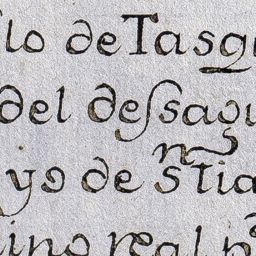 llo de Tasqu
del dessagu
yo a de Sntia
ino real pa